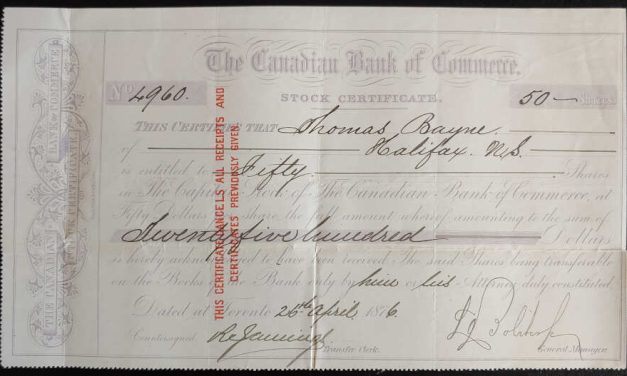 The Canadian Bank of Commerce.
No 4960.
STOCK CERTIFICATE.
50 — Shares
THIS CERTIFIES THAT Thomas Bayne.
of Halifax. N.S.
is entitled to Fifty Shares
in The Capital Stock of The Canadian Bank of Commerce, at
Fifty Dollars a share the full amount whereof amounting to the sum of
Twenty five hundred Dollars
is hereby acknowledged to have been received The said Shares being transferable
on the Books of the Bank only by him or his Attorney duly constituted.
Dated at Toronto 26th April 1876.
Countersigned.
Transfer Clerk.
General Manager.
THIS CERTIFICATE CANCELS ALL RECEIPTS AND
CERTIFICATES PREVIOUSLY GIVEN
THE CANADIAN
BANK OF COMMERCE
STOCK CERTIFICATE